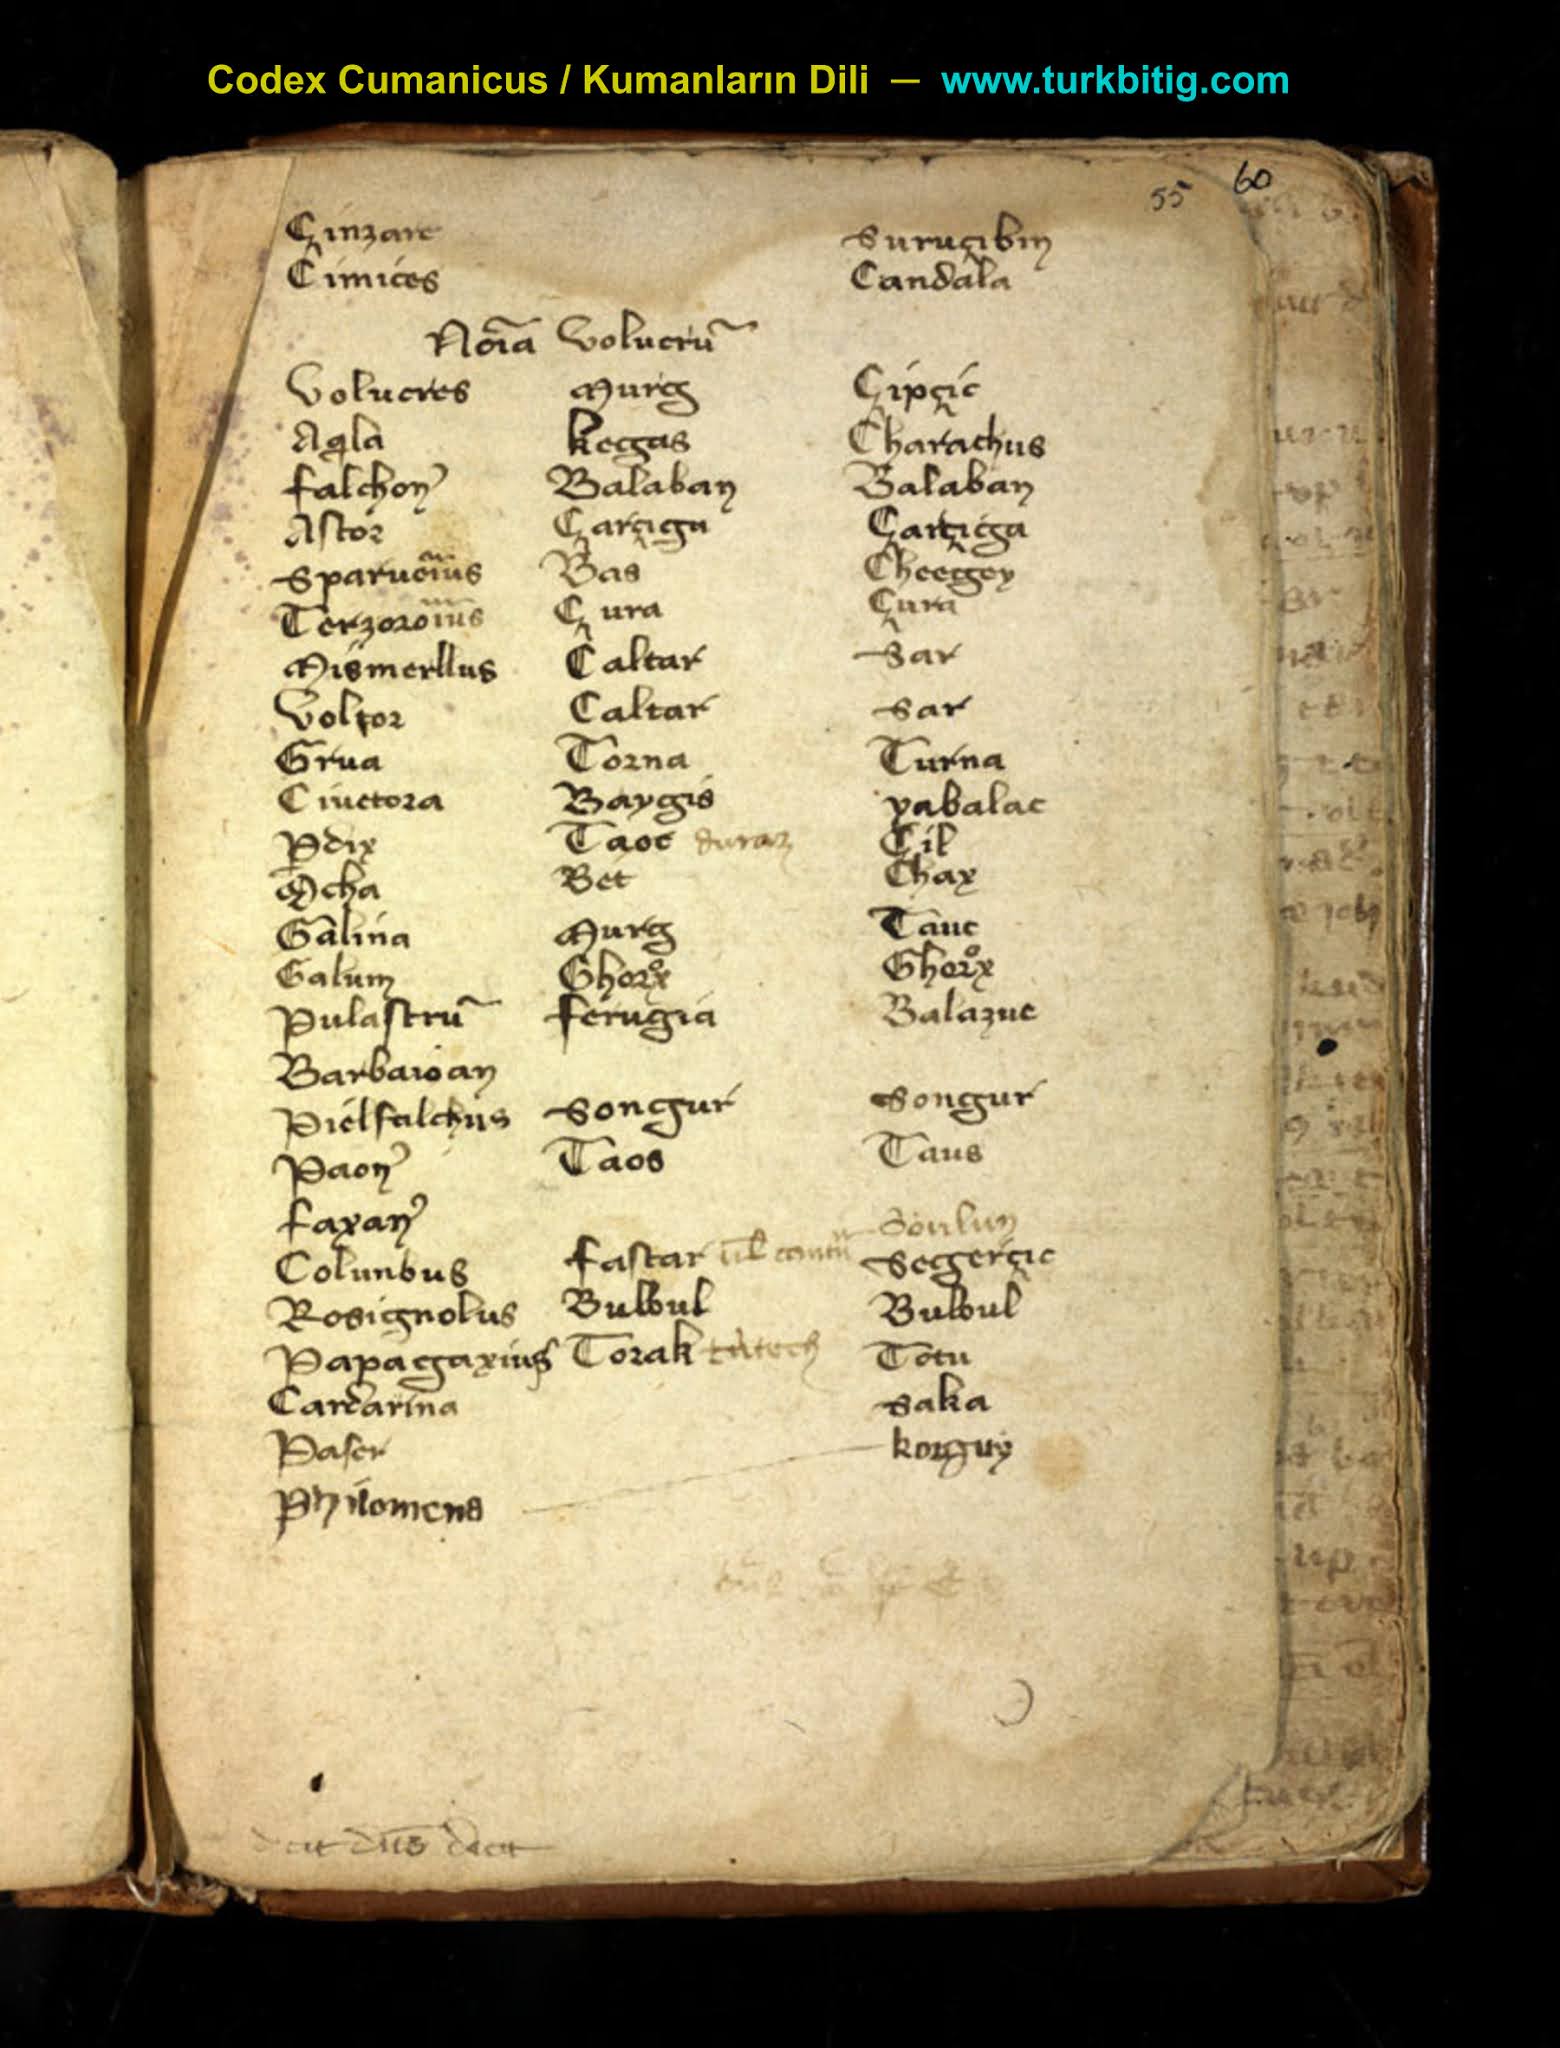 Codex Cumanicus / Kumanların Dili — www.turkbitig.com
55 60
Çinzare Suruçibin
Cimices Candala
Noīa Volucrū
Volucres Murg Çipçic
Aqla kecgas Charachus
falchon̉ Balaban Balaban
Astor Çarçigu Çarçiga
Sparuerius Bas Cheegey
Terzoroius Çura Çura
Mismerllus Caltar Sar
Voltor Caltar Sar
Grua Torna Turna
Ciuetora Baygis yabalac
Pdix Taoc duraz Cil
Ocha Bet Chax
Galina Murg Tauc
Galum Ghorox Ghorox
Pulastrū ferugia Balazuc
Barbaioan
Pielfalchus Songur Songur
Paon̉ Taos Taus
faxan̉ Soulun
Colunbus fastar Segerçic
Rosignolus Bulbul Bulbul
Papagaxius Torak Totu
Carderina saka
Paser korguy
Philomena